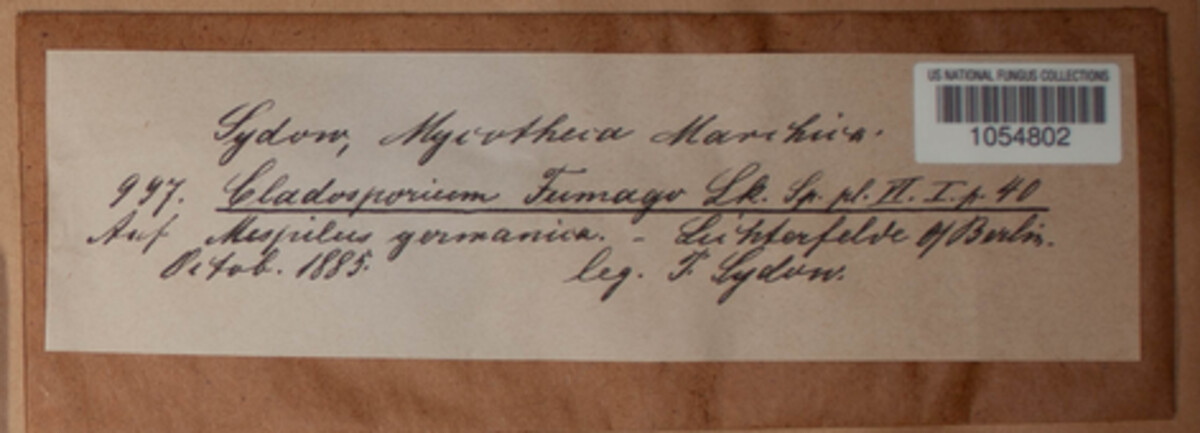 US NATIONAL FUNGUS COLLECTIONS
1054802
Sydow, Mycotheca Marchica.
997. Cladosporium Fumago Lk. Sp. pl. VI. I. p. 40
Auf Mespilus germanica. - Lichterfelde b/Berlin.
Octob. 1885. leg. P. Sydow.